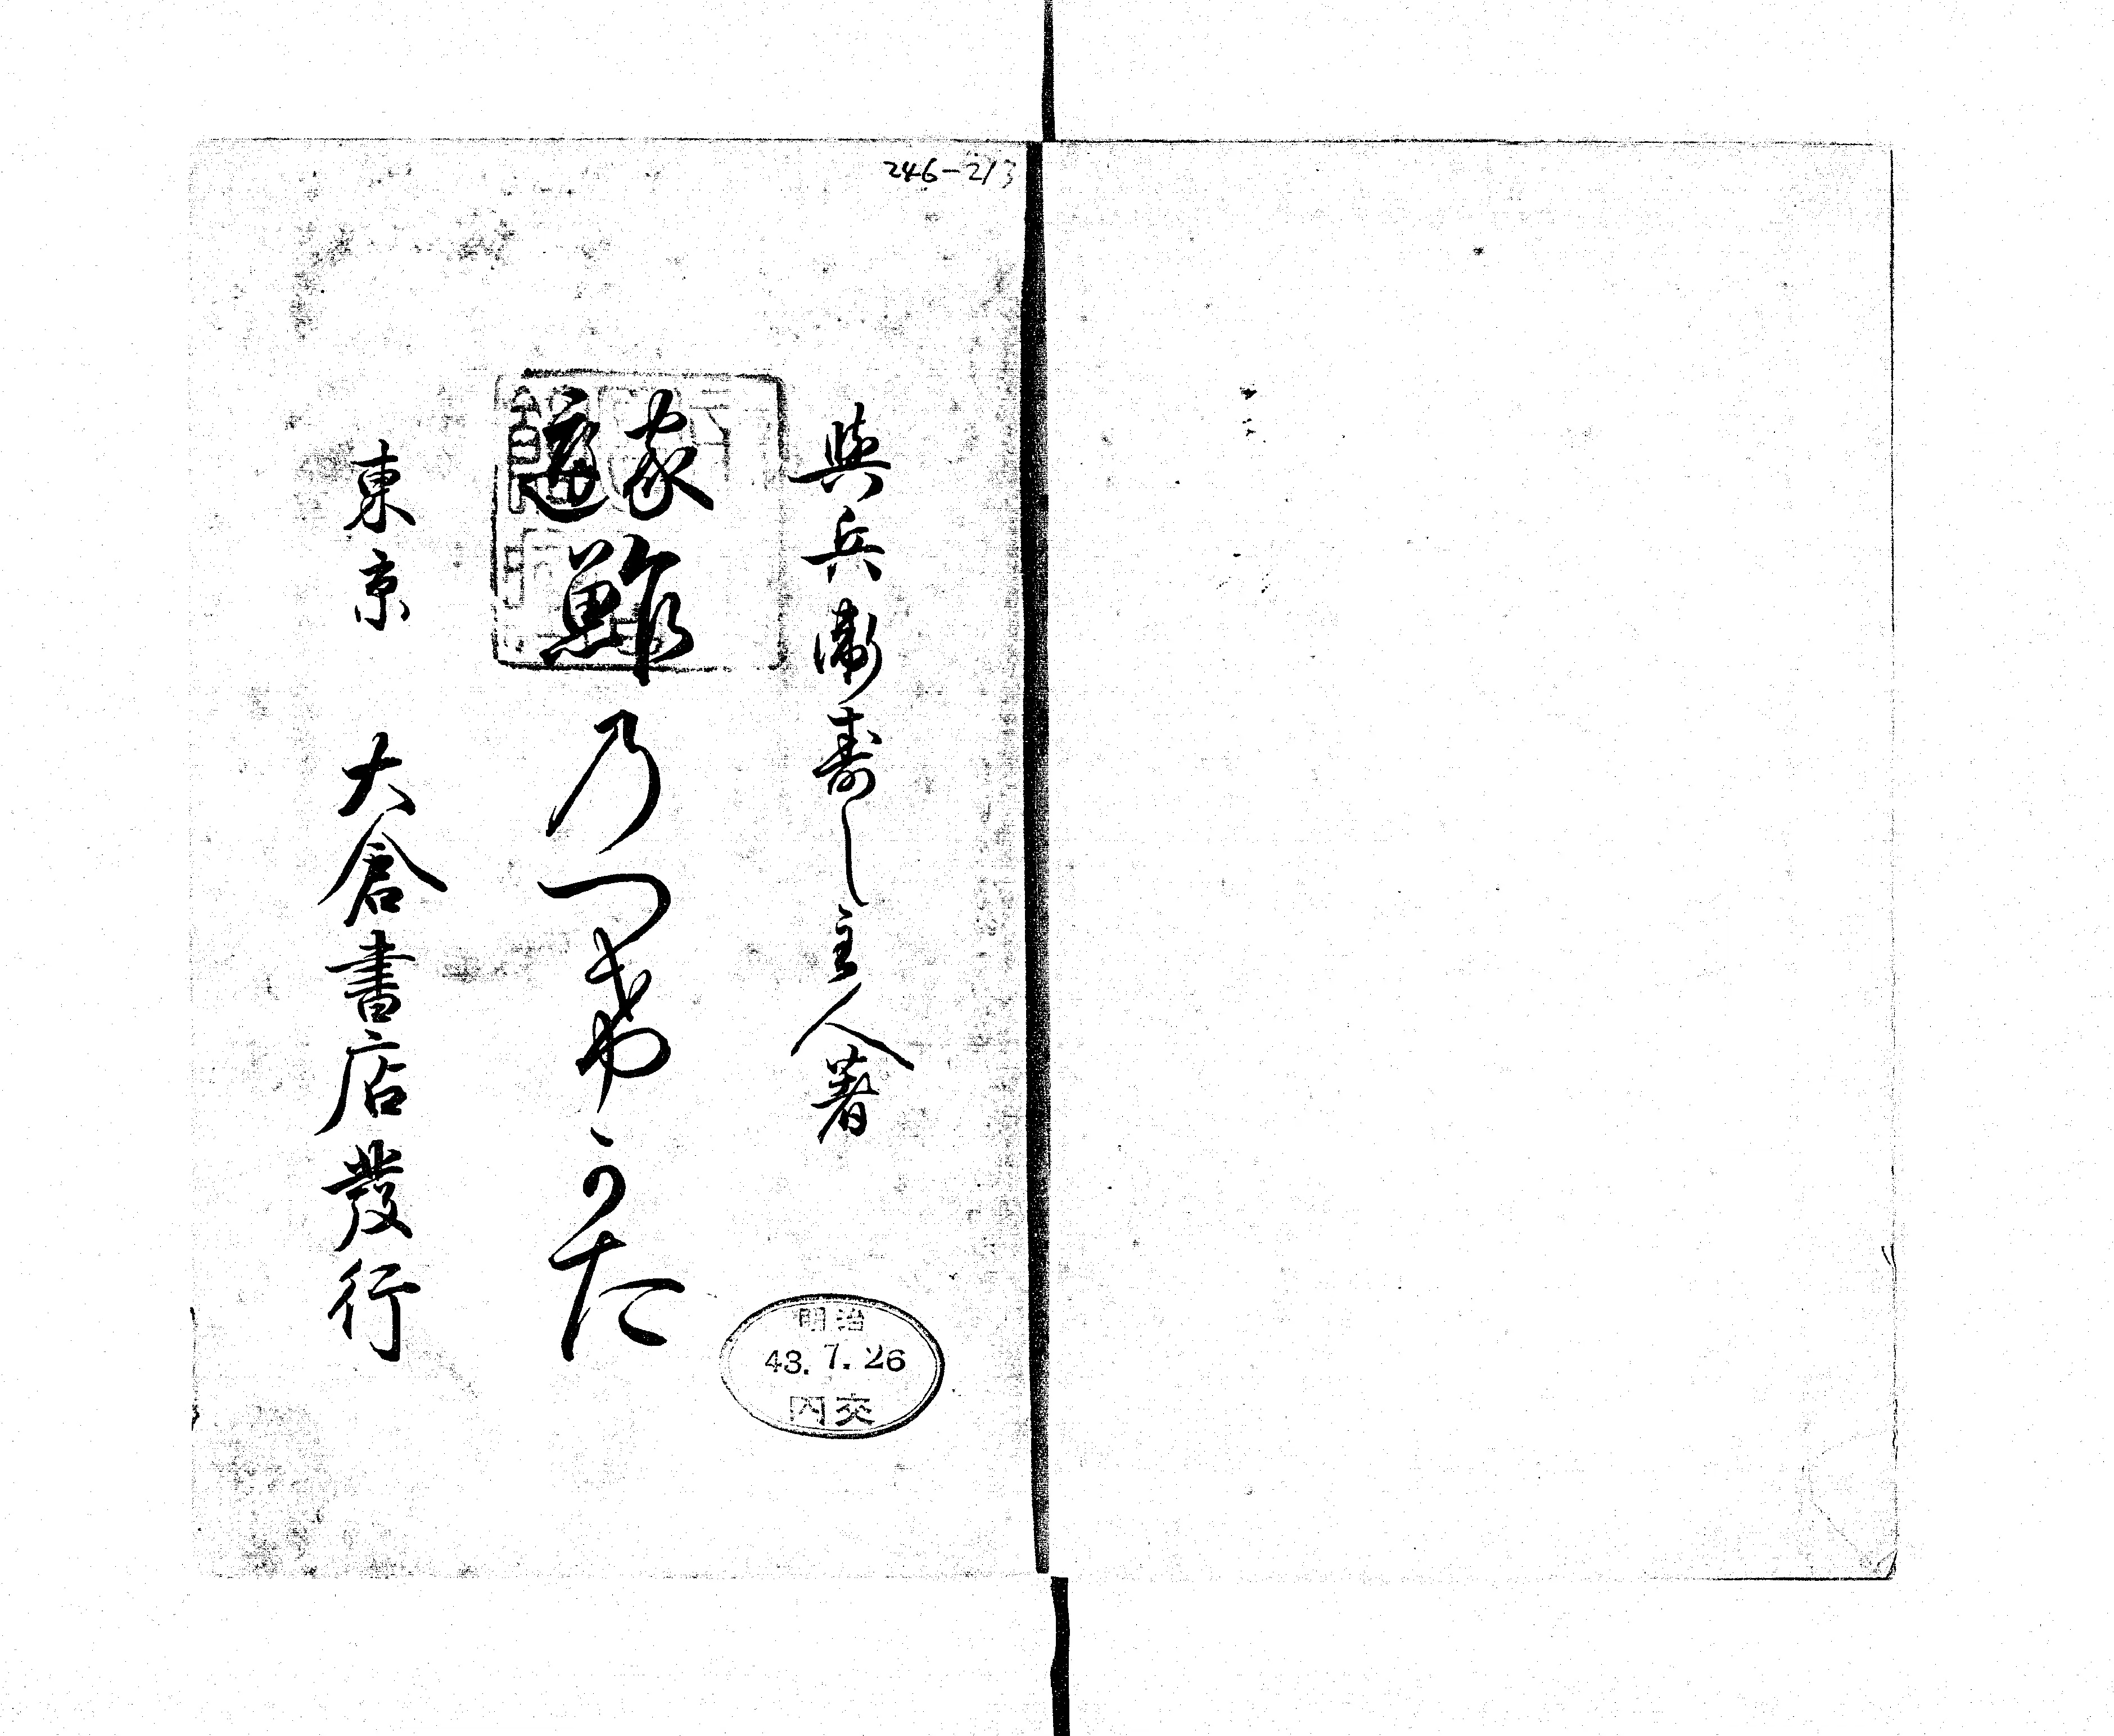 246-213
與兵衛壽し主人著
家庭
鮓乃つけかた
東京 大倉書店發行
明治
43. 7. 26
内交